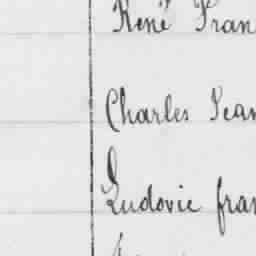 René Fran
Charles Jean
Ludovic fran